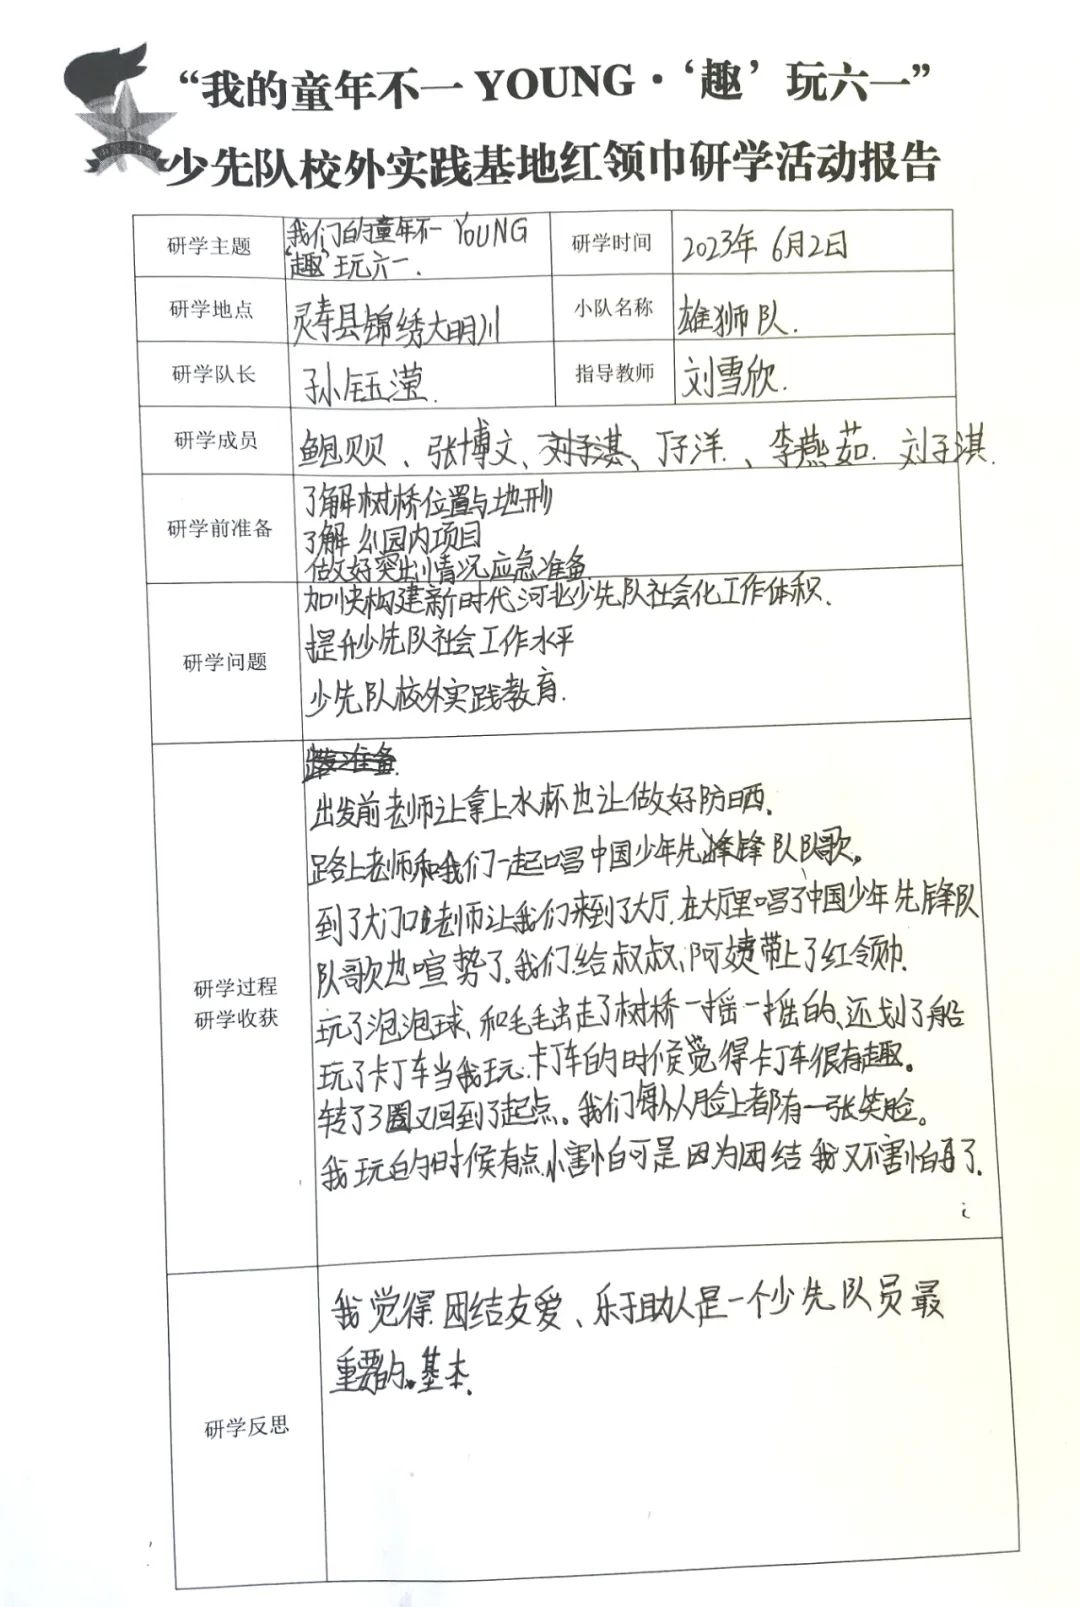 “我的童年不一 YOUNG·‘趣’玩六一”
少先队校外实践基地红领巾研学活动报告
研学主题 我们的童年不一 YOUNG “趣”玩六一. 研学时间 2023年 6月2日
研学地点 灵寿县锦绣大明川 小队名称 雄狮队.
研学队长 孙钰滢. 指导教师 刘雪欣.
研学成员 鲍贝贝、张博文、刘子淇、丁子洋.、李燕茹. 刘子淇.
研学前准备
了解树桥位置与地形
了解公园内项目
做好突出情况应急准备
研学问题
加快构建新时代河北少先队社会化工作体积.
提升少先队社会工作水平
少先队校外实践教育.
研学过程
研学收获
准备.
出发前老师让拿上水杯也让做好防晒.
路上老师和我们一起唱中国少年先锋队队歌。
到了大门口老师让我们来到了大厅.在大厅里唱了中国少年先锋队
队歌也喧势了.我们给叔叔、阿姨带上了红领巾.
玩了泡泡球、和毛毛虫走了树桥一摇一摇的、还划了船
玩了卡丁车当我玩.卡丁车的时候觉得卡丁车很有趣。
转了3圈又回到了起点。我们每个人脸上都有一张笑脸。
我玩的时候有点小害怕可是因为团结我又不害怕了.
研学反思
我觉得团结友爱、乐于助人是一个少先队员最
重要的.基本.